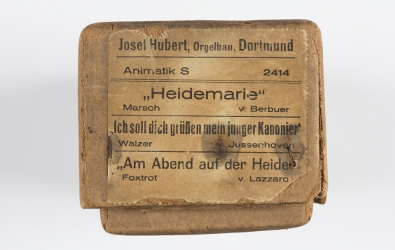 Josef Hubert, Orgelbau, Dortmund
Animatik S 2414
„Heidemarie"
Marsch v. Berbuer
„Ich soll dich grüßen mein junger Kanonier"
Walzer v. Jussenhoven
„Am Abend auf der Heide"
Foxtrot v. Lazzaro